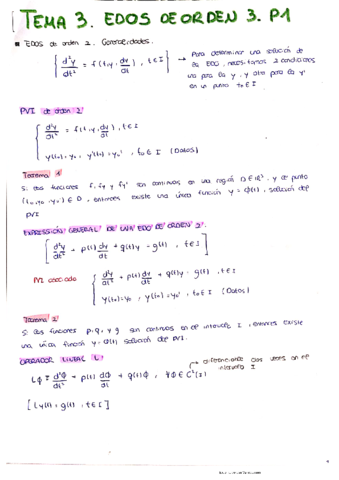 TEMA 3. EDOS DE ORDEN 3. P1
EDOS de orden 2. Generalidades.
{ d²y/dt² = f(t,y,dy/dt), t∈I } → Para determinar una solución de
la EDO, necesitamos 2 condiciones
una para la y, y otra para la y'
en un punto t₀∈I
PVI de orden 2
{ d²y/dt² = f(t,y,dy/dt), t∈I
y(t₀)=y₀, y'(t₀)=y₀', t₀∈I (Datos)
Teorema 1
Si las funciones f, fy y fy' son continuas en una región D∈R³, y el punto
(t₀,y₀,y₀')∈D, entonces existe una única función y=φ(t), solución del
PVI
EXPRESIÓN GENERAL DE UNA EDO DE ORDEN 2
[ d²y/dt² + p(t) dy/dt + q(t)y = g(t), t∈I ]
PVI asociado { d²y/dt² + p(t) dy/dt + q(t)y = g(t), t∈I
y(t₀)=y₀, y'(t₀)=y₀', t₀∈I (Datos)
Teorema 2
Si las funciones p, q y g son continuas en el intervalo I, entonces existe
una única función y=φ(t) solución del PVI.
OPERADOR LINEAL L
→ diferenciable dos veces en el
intervalo I
Lφ = d²φ/dt² + p(t) dφ/dt + q(t)φ, ∀φ∈C²(I)
[ Ly(t)=g(t), t∈I ]